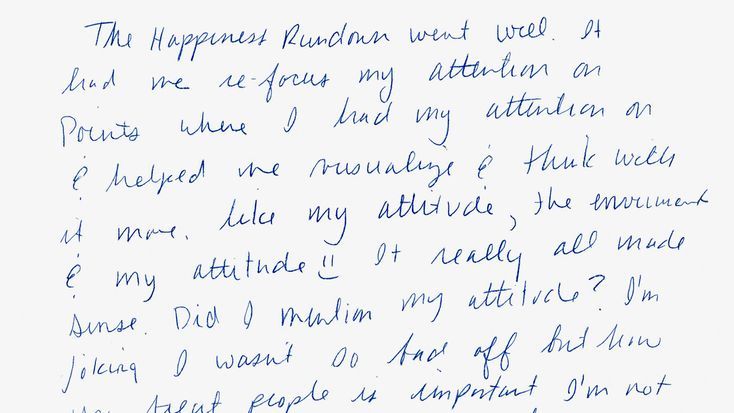 The Happiness Rundown went well. It
had me re-focus my attention on
Points where I had my attention on
& helped me visualize & think with
it more. Like my attitude, the enviriment
& my attitude!! It really all made
sense. Did I mention my attitude? I'm
joking I wasn't so bad off but how
you treat people is important I'm not